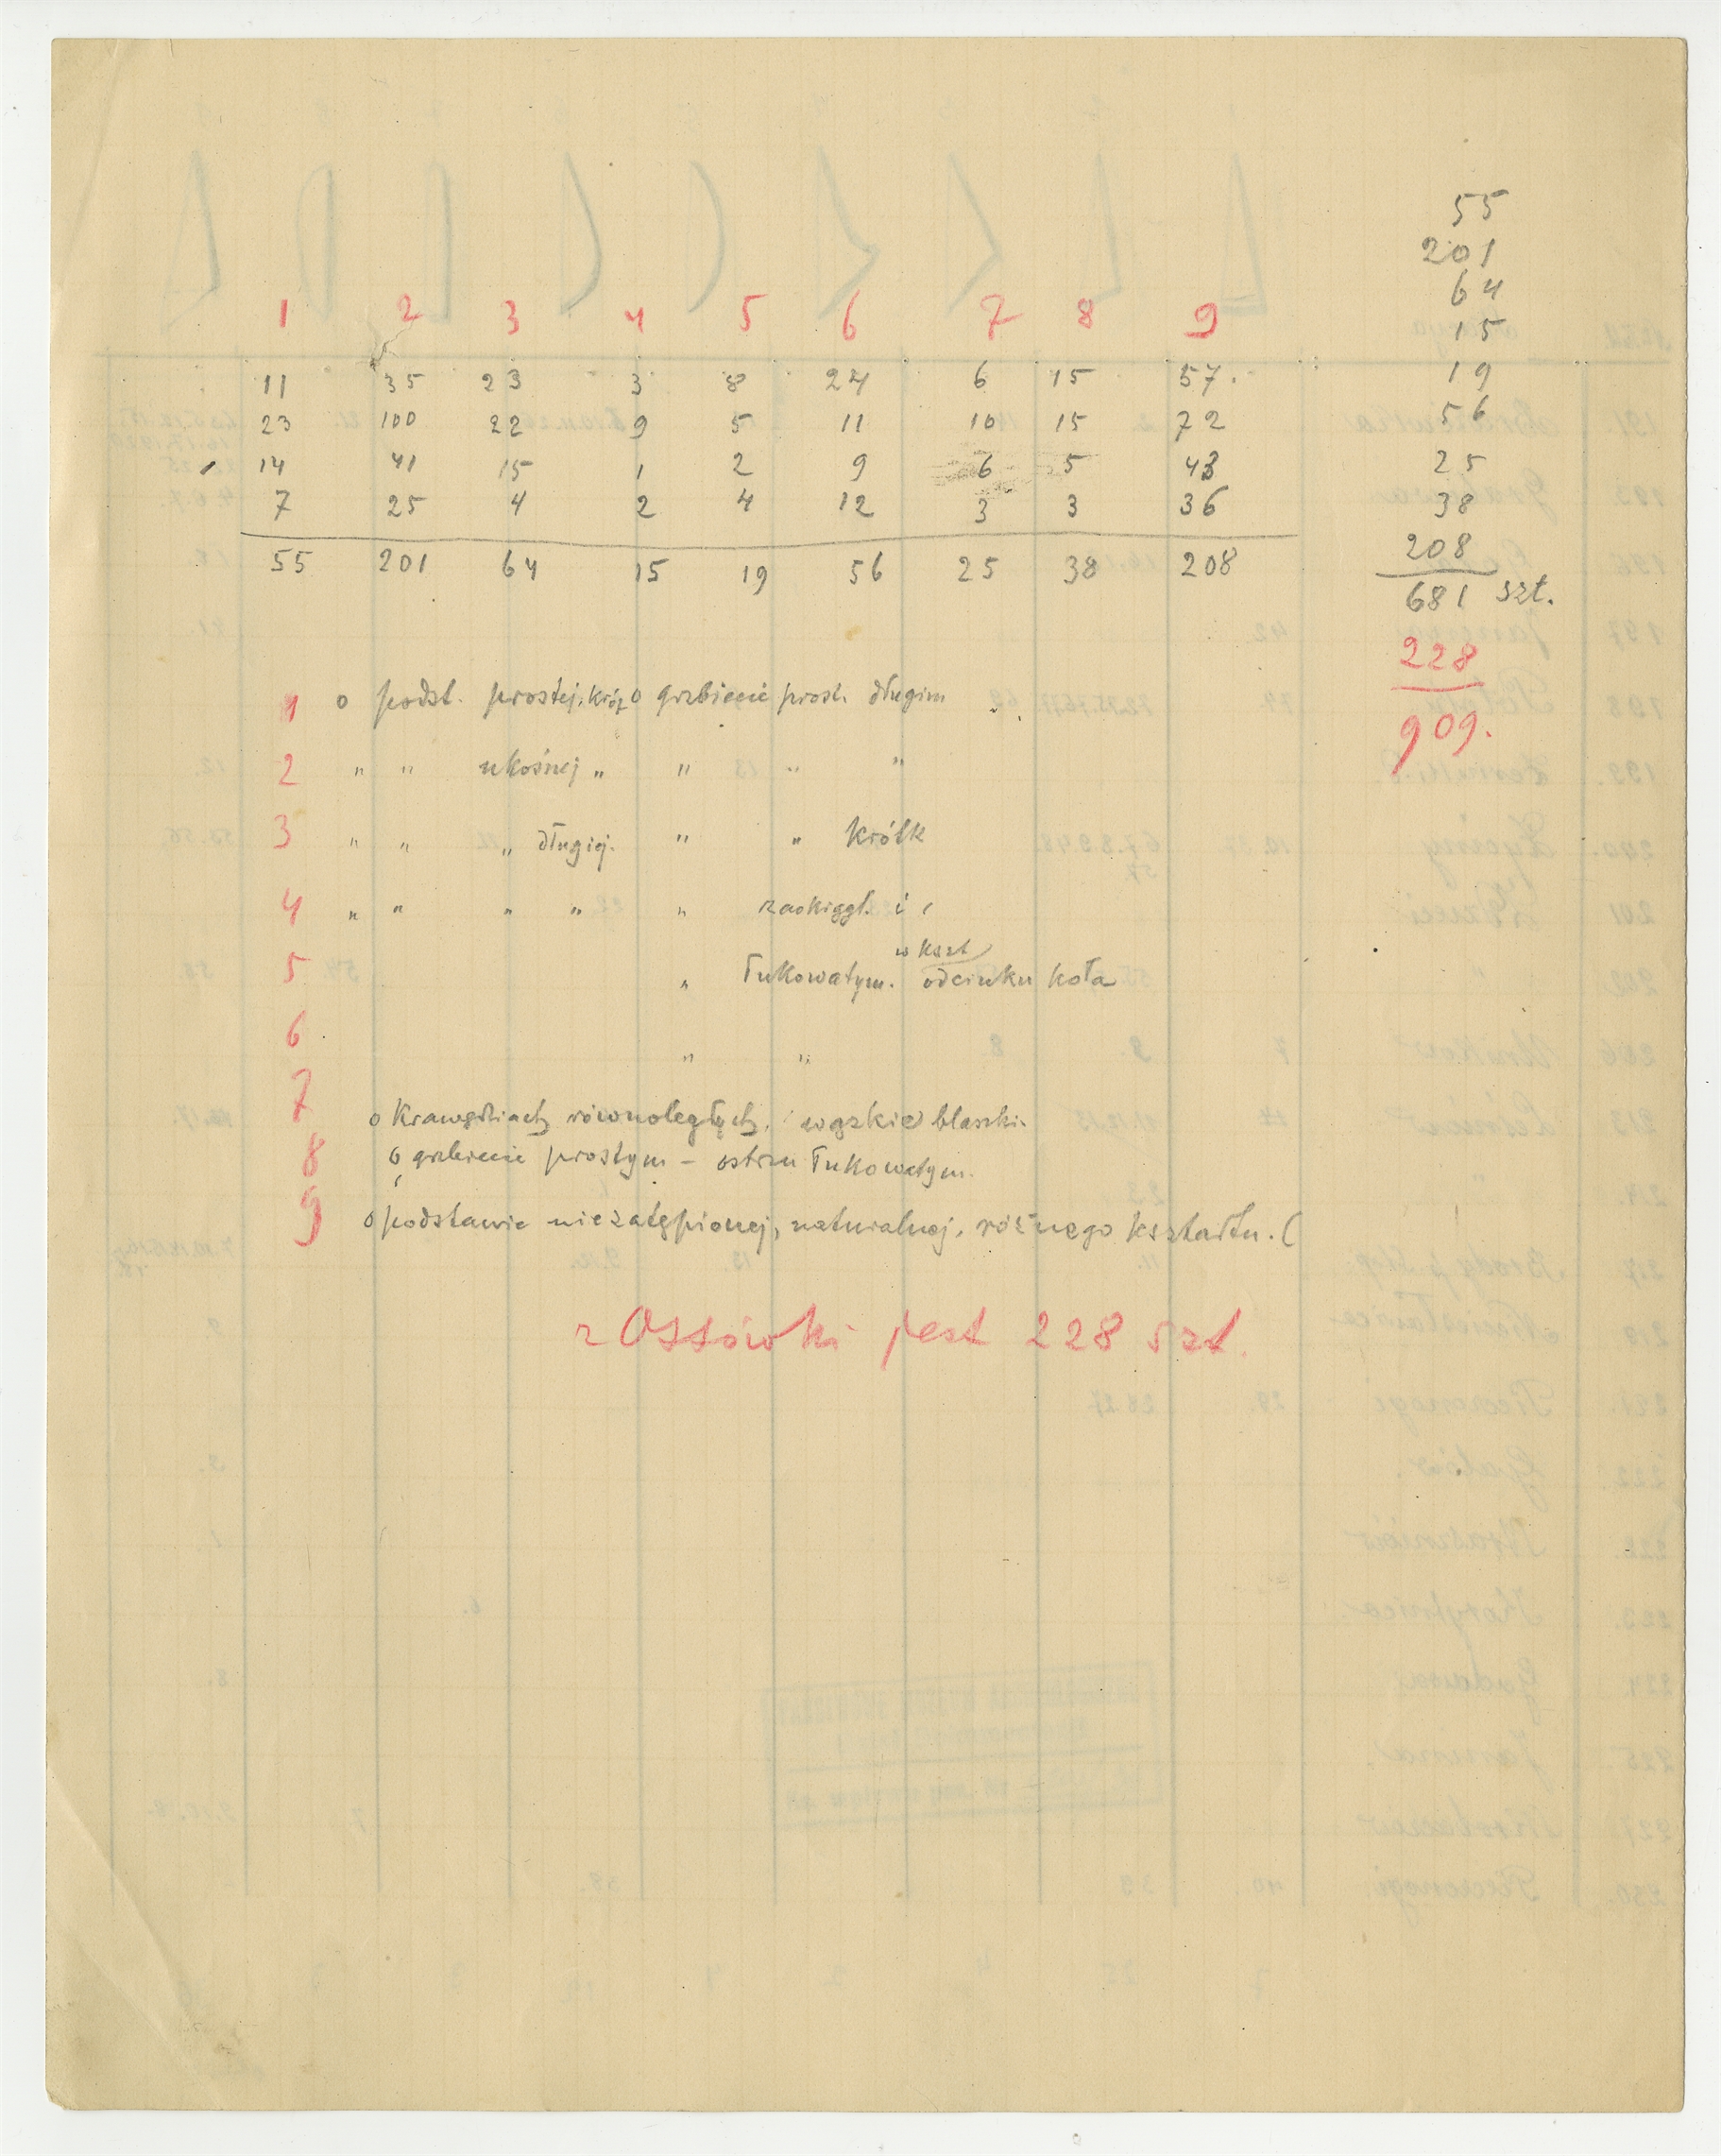 1 2 3 4 5 6 7 8 9
11 35 23 3 8 24 6 15 57.
23 100 22 9 5 11 10 15 72
14 41 15 1 2 9 6 5 43
7 25 4 2 4 12 3 3 36
55 201 64 15 19 56 25 38 208
55
201
64
15
19
56
25
38
208
681 szt.
228
909.
1 o podst. prostej, krót o grzbiecie prost. długim
2 " " ukośnej " " " "
3 " " " długiej. " " krótk
4 " " " " " zaokrągl. i
w kszt
5 " łukowatym. odcinku koła
6 " "
7 o krawędziach równoległych, wązkie blaszki.
8 o grzbiecie prostym – ostrzu łukowatym.
9 o podstawie niezatępionej, naturalnej, różnego kształtu. (
z Ossówki jest 228 szt.